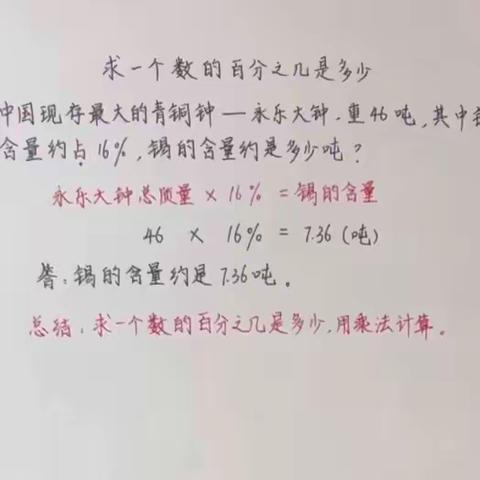 求一个数的百分之几是多少
中国现存最大的青铜钟—永乐大钟.重46吨,其中
含量约占16%,锡的含量约是多少吨?
永乐大钟总质量×16%=锡的含量
46 × 16% = 7.36 (吨)
答:锡的含量约是7.36吨。
总结:求一个数的百分之几是多少,用乘法计算。